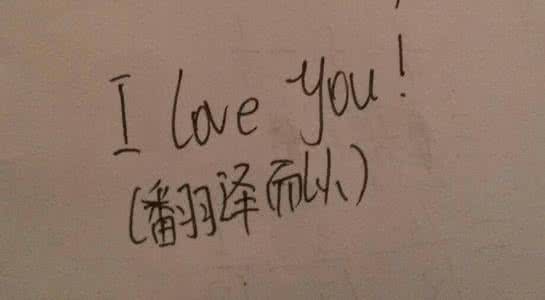 I Love You!
(翻译而以)